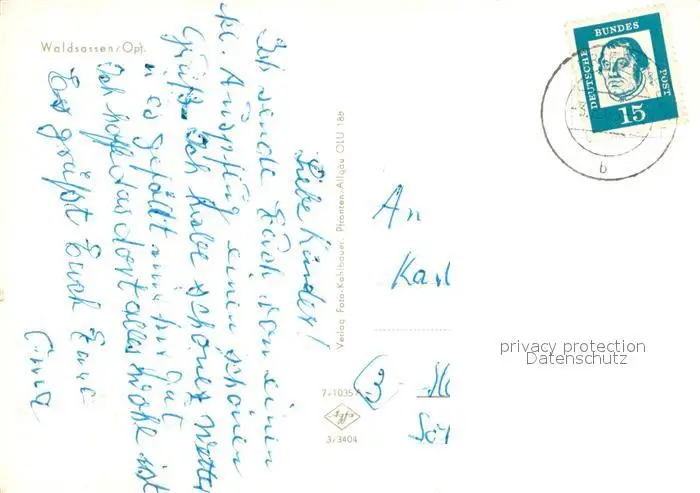 Waldsassen/Opf.
Liebe Kinder!
Ich sende Euch von einem
kl. Ausflug einen schönen
Gruß. Ich habe schönes Wetter
u es gefällt mir hir gut
Ich hoffe das dort alles wohl ist
Es grüßt Euch Eure
Oma
Verlag Foto-Kohlbauer, Pfronten-Allgäu OLU 186
7-1035
3/3404
DEUTSCHE
BUNDES
POST
15
b
An
Kar
3
privacy protection
Datenschutz